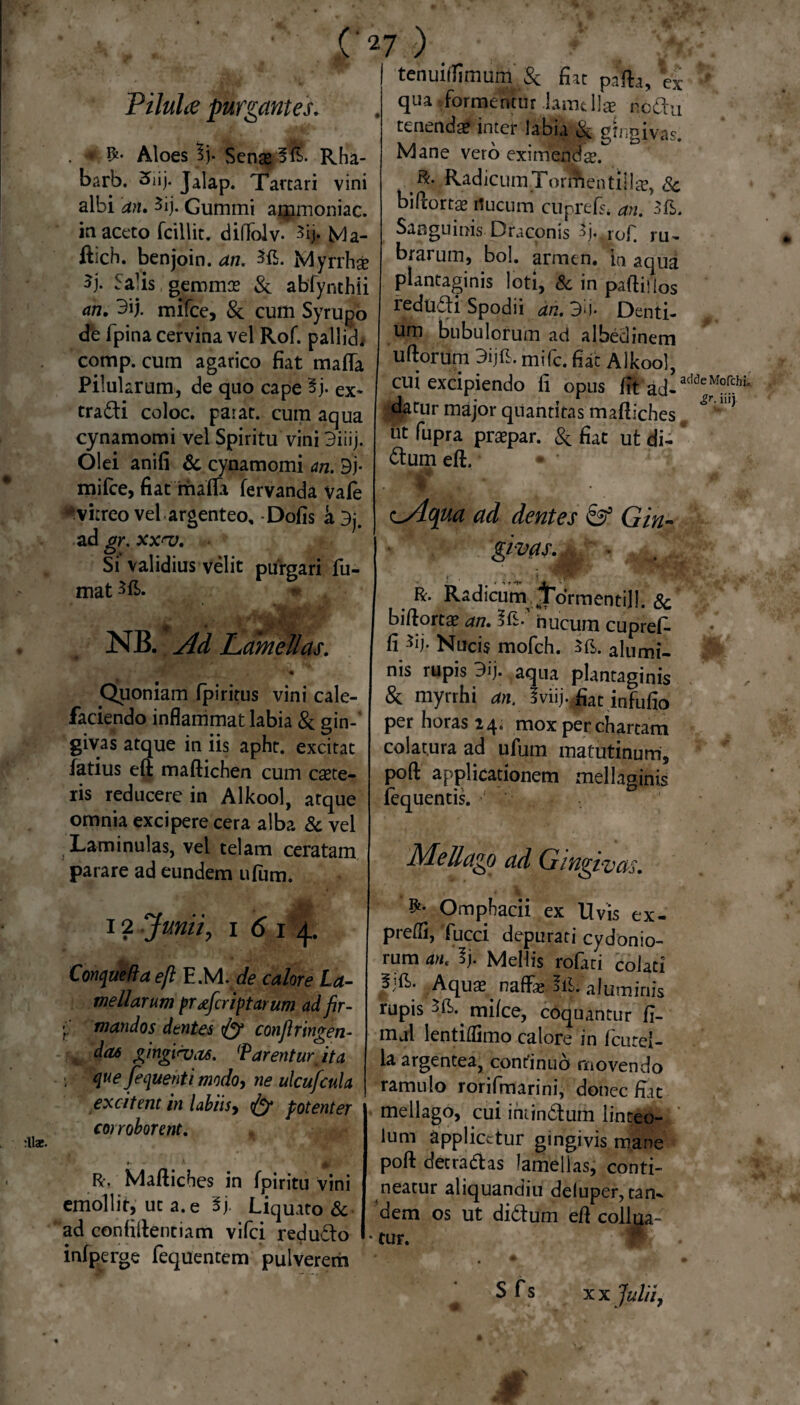 ( 27 )
Pilulæ purgantes.
℞. Aloes ℥j. Senæ ℥ß. Rha-
barb. ʒiij. Jalap. Tartari vini
albi an. ʒij. Gummi ammoniac.
in aceto ſcillit. diſſolv. ʒij. Ma-
ſtich. benjoin. an. ʒß. Myrrhæ
ʒj. Salis gemmæ & abſynthii
an. ℈ij. miſce, & cum Syrupo
de ſpina cervina vel Roſ. pallid.
comp. cum agarico fiat maſſa
Pilularum, de quo cape ℥j. ex-
tracti coloc. parat. cum aqua
cynamomi vel Spiritu vini ℈iiij.
Olei aniſi & cynamomi an. ℈j.
miſce, fiat maſſa ſervanda vaſe
vitreo vel argenteo. Doſis à ℈j.
ad gr. xxv.
Si validius velit purgari ſu-
mat ʒß.
NB. Ad Lamellas.
Quoniam ſpiritus vini cale-
faciendo inflammat labia & gin-
givas atque in iis apht. excitat
ſatius eſt maſtichen cum cæte-
ris reducere in Alkool, atque
omnia excipere cera alba & vel
Laminulas, vel telam ceratam
parare ad eundem uſum.
12 Junii, 1614.
Conqueſta eſt E.M. de calore La-
mellarum præſcriptarum ad fir-
mandos dentes & conſtringen-
das gingivas. Parentur ita
que ſequenti modo, ne ulcuſcula
excitent in labiis, & potenter
corroborent.
:llæ.
℞. Maſtiches in ſpiritu vini
emollit, ut a. e ℥j. Liquato &
ad conſiſtentiam viſci reducto
inſperge ſequentem pulverem
tenuiſſimum & fiat paſta, ex
qua formentur lamellæ noctu
tenendæ inter labia & gingivas.
Mane vero eximendæ.
℞. Radicum Tormentillæ, &
biſtortæ nucum cupreſs. an. ʒß.
Sanguinis Draconis ʒj. roſ. ru-
brarum, bol. armen. in aqua
plantaginis loti, & in paſtillos
reducti Spodii an. ℈ij. Denti-
um bubulorum ad albedinem
uſtorum ℈ijß. miſc. fiat Alkool,
cui excipiendo ſi opus ſit ad-
datur major quantitas maſtiches
ut ſupra præpar. & fiat ut di-
ctum eſt.
adde Moſchi.
gr. iiij
Aqua ad dentes & Gin-
givas.
℞. Radicum Tormentill. &
biſtortæ an. ℥ß. nucum cupreſ-
ſi ʒij. Nucis moſch. ʒß. alumi-
nis rupis ℈ij. aqua plantaginis
& myrrhi an. ℥viij. fiat infuſio
per horas 24. mox per chartam
colatura ad uſum matutinum,
poſt applicationem mellaginis
ſequentis.
Mellago ad Gingivas.
℞. Omphacii ex Uvis ex-
preſſi, ſucci depurati cydonio-
rum an. ℥j. Mellis roſati colati
℥jß. Aquæ naffæ ℥ß. aluminis
rupis ʒß. miſce, coquantur ſi-
mul lentiſſimo calore in ſcutel-
la argentea, continuò movendo
ramulo roriſmarini, donec fiat
mellago, cui intinctum linteo-
lum applicetur gingivis mane
poſt detractas lamellas, conti-
neatur aliquandiu deſuper, tan-
dem os ut dictum eſt collua-
tur.
S ſ s
xx Julii,